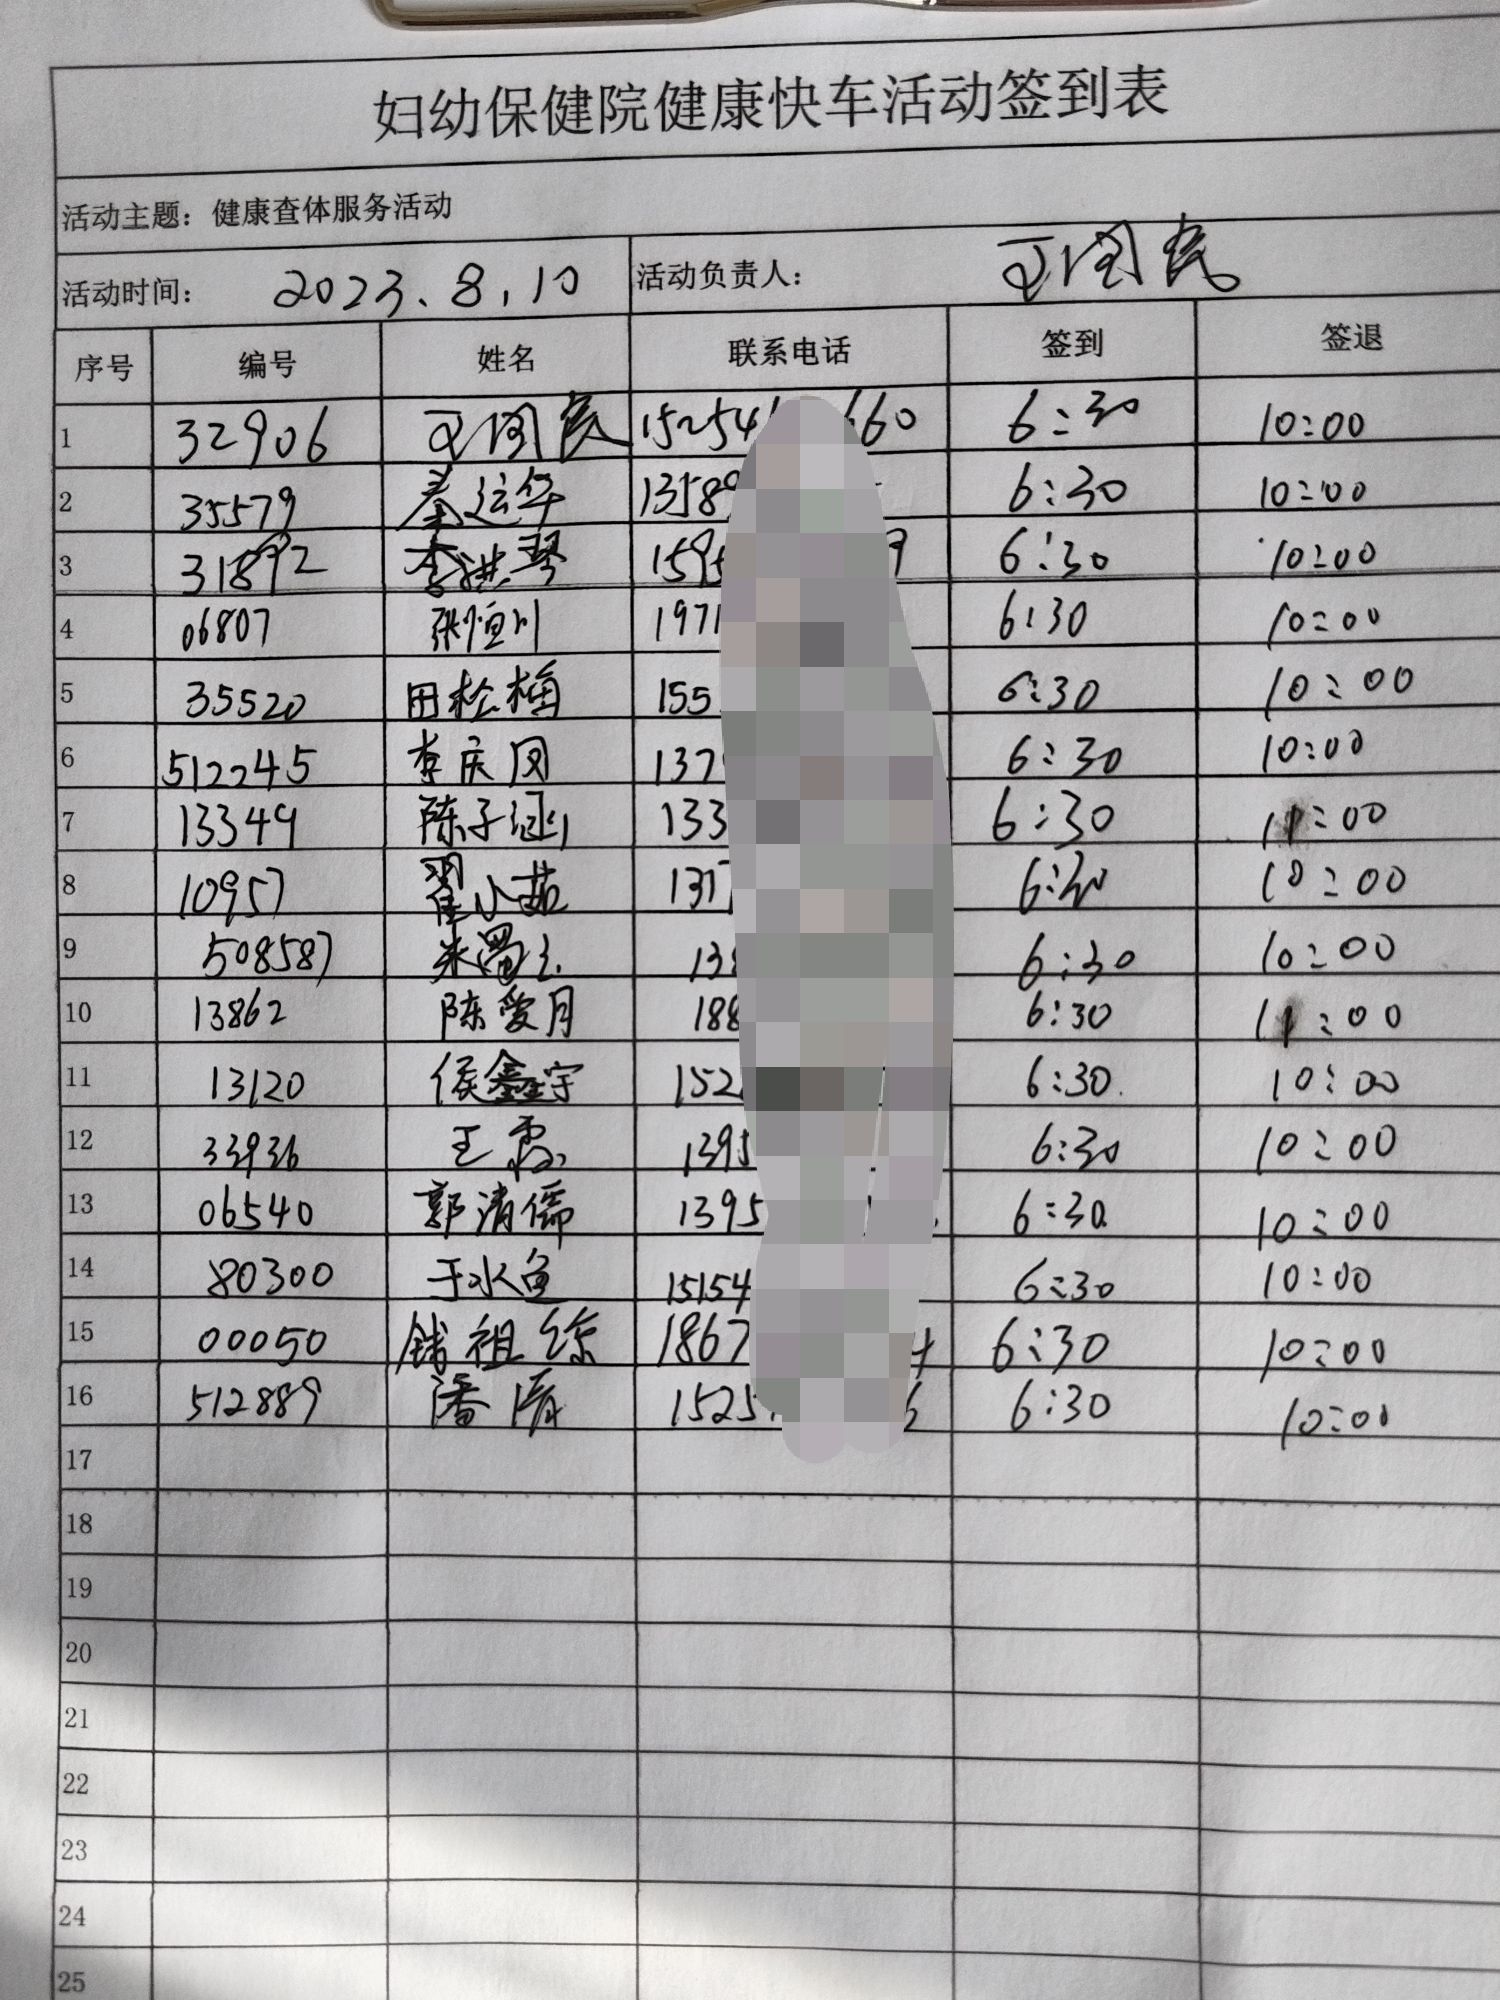 妇幼保健院健康快车活动签到表
活动主题：健康查体服务活动
活动时间： 2023.8.10 活动负责人： 王国民
序号 编号 姓名 联系电话 签到 签退
1 32906 王国民 15254 660 6:30 10:00
2 35579 秦运华 1358 6:30 10:00
3 31892 李洪琴 159 9 6:30 10:00
4 06807 张恒川 197 6:30 10:00
5 35520 田松梅 155 6:30 10:00
6 512245 李庆凤 137 6:30 10:00
7 13349 陈子涵 133 6:30 :00
8 10957 翟小茹 137 6:30 10:00
9 508587 朱 玉 13 6:30 10:00
10 13862 陈爱月 188 6:30 :00
11 13120 侯鑫宇 152 6:30 10:00
12 33936 王霞 1395 6:30 10:00
13 06540 郭清儒 1395 6:30 10:00
14 80300 于水鱼 15154 6:30 10:00
15 00050 钱祖 1867 4 6:30 10:00
16 512889 潘 1525 6 6:30 10:00
17
18
19
20
21
22
23
24
25